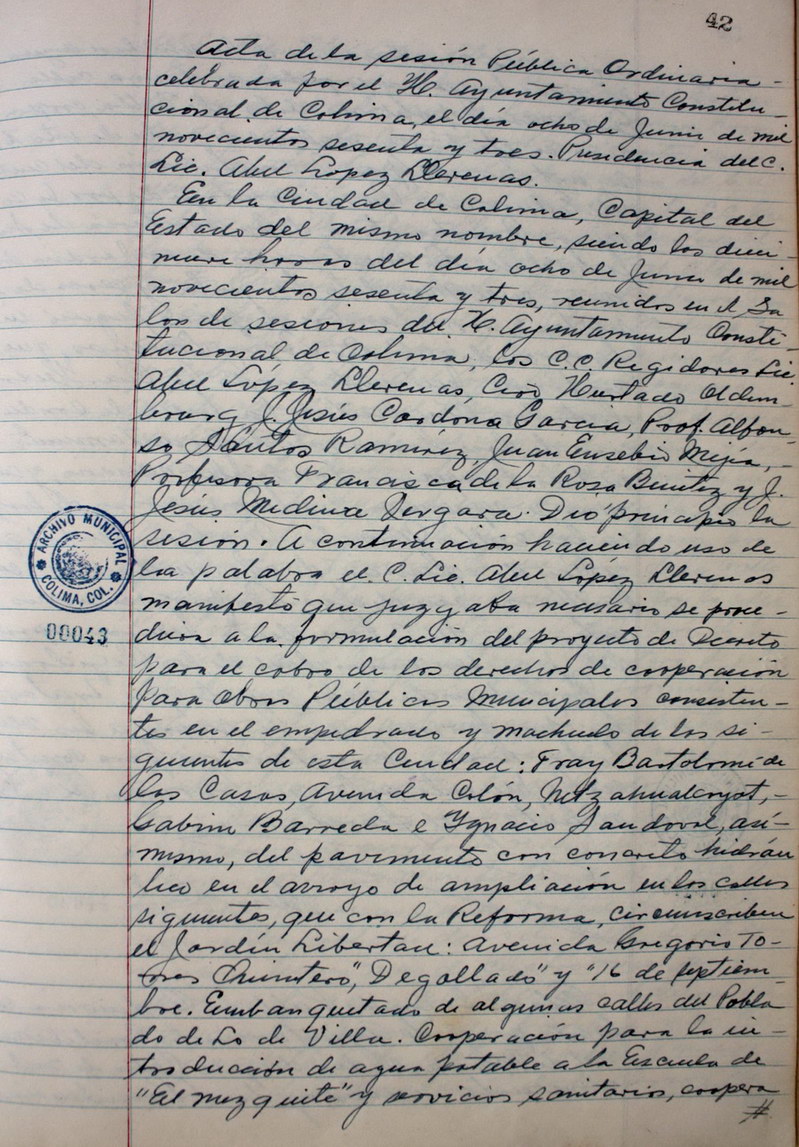 42
Acta de la sesión Pública Ordinaria -
celebrada por el H. Ayuntamiento Constitu-
cional de Colima, el día ocho de Junio de mil
novecientos sesenta y tres. Presidencia del C.
Lic. Abel López Llerenas.
En la Ciudad de Colima, Capital del
Estado del mismo nombre, siendo las dieci-
nueve horas del día ocho de Junio de mil
novecientos sesenta y tres, reunidos en el Sa
lón de sesiones del H. Ayuntamiento Consti-
tucional de Colima, los C.C. Regidores Lic.
Abel López Llerenas, Ciro Hurtado Oldem-
bourg J. Jesús Cardona Garcia, Prof. Alfon-
so Santos Ramírez, Juan Eusebio Mejía, -
Profesora Francisca de la Rosa Benitez y J.
Jesús Medina Vergara. Dió principio la
sesión. A continuación haciendo uso de
la palabra el C. Lic. Abel López Llerenas
manifestó que juzgaba necesario se proce-
diera a la formulación del proyecto de Decreto
para el cobro de los derechos de cooperación
para Obras Públicas Municipales consisten-
tes en el empedrado y machuelo de las si-
guientes de esta Ciudad: Fray Bartolomé de
las Casas, Avenida Colón, Netzahualcoyot, -
Gabino Barreda e Ygnacio Sandoval, así-
mismo, del pavimento con concreto hidráu
lico en el arroyo de ampliación en las calles
siguientes, que con la Reforma, circunscriben
el Jardín Libertad: Avenida Gregorio To-
rres Quintero", Degollado" y "16 de Septiem-
bre. Embanquetado de algunas calles del Pobla
do de Lo de Villa. Cooperación para la in-
troducción de agua potable a la Escuela de
"El mezquite" y servicios sanitarios, coopera
#
ARCHIVO MUNICIPAL
COLIMA, COL.
00043